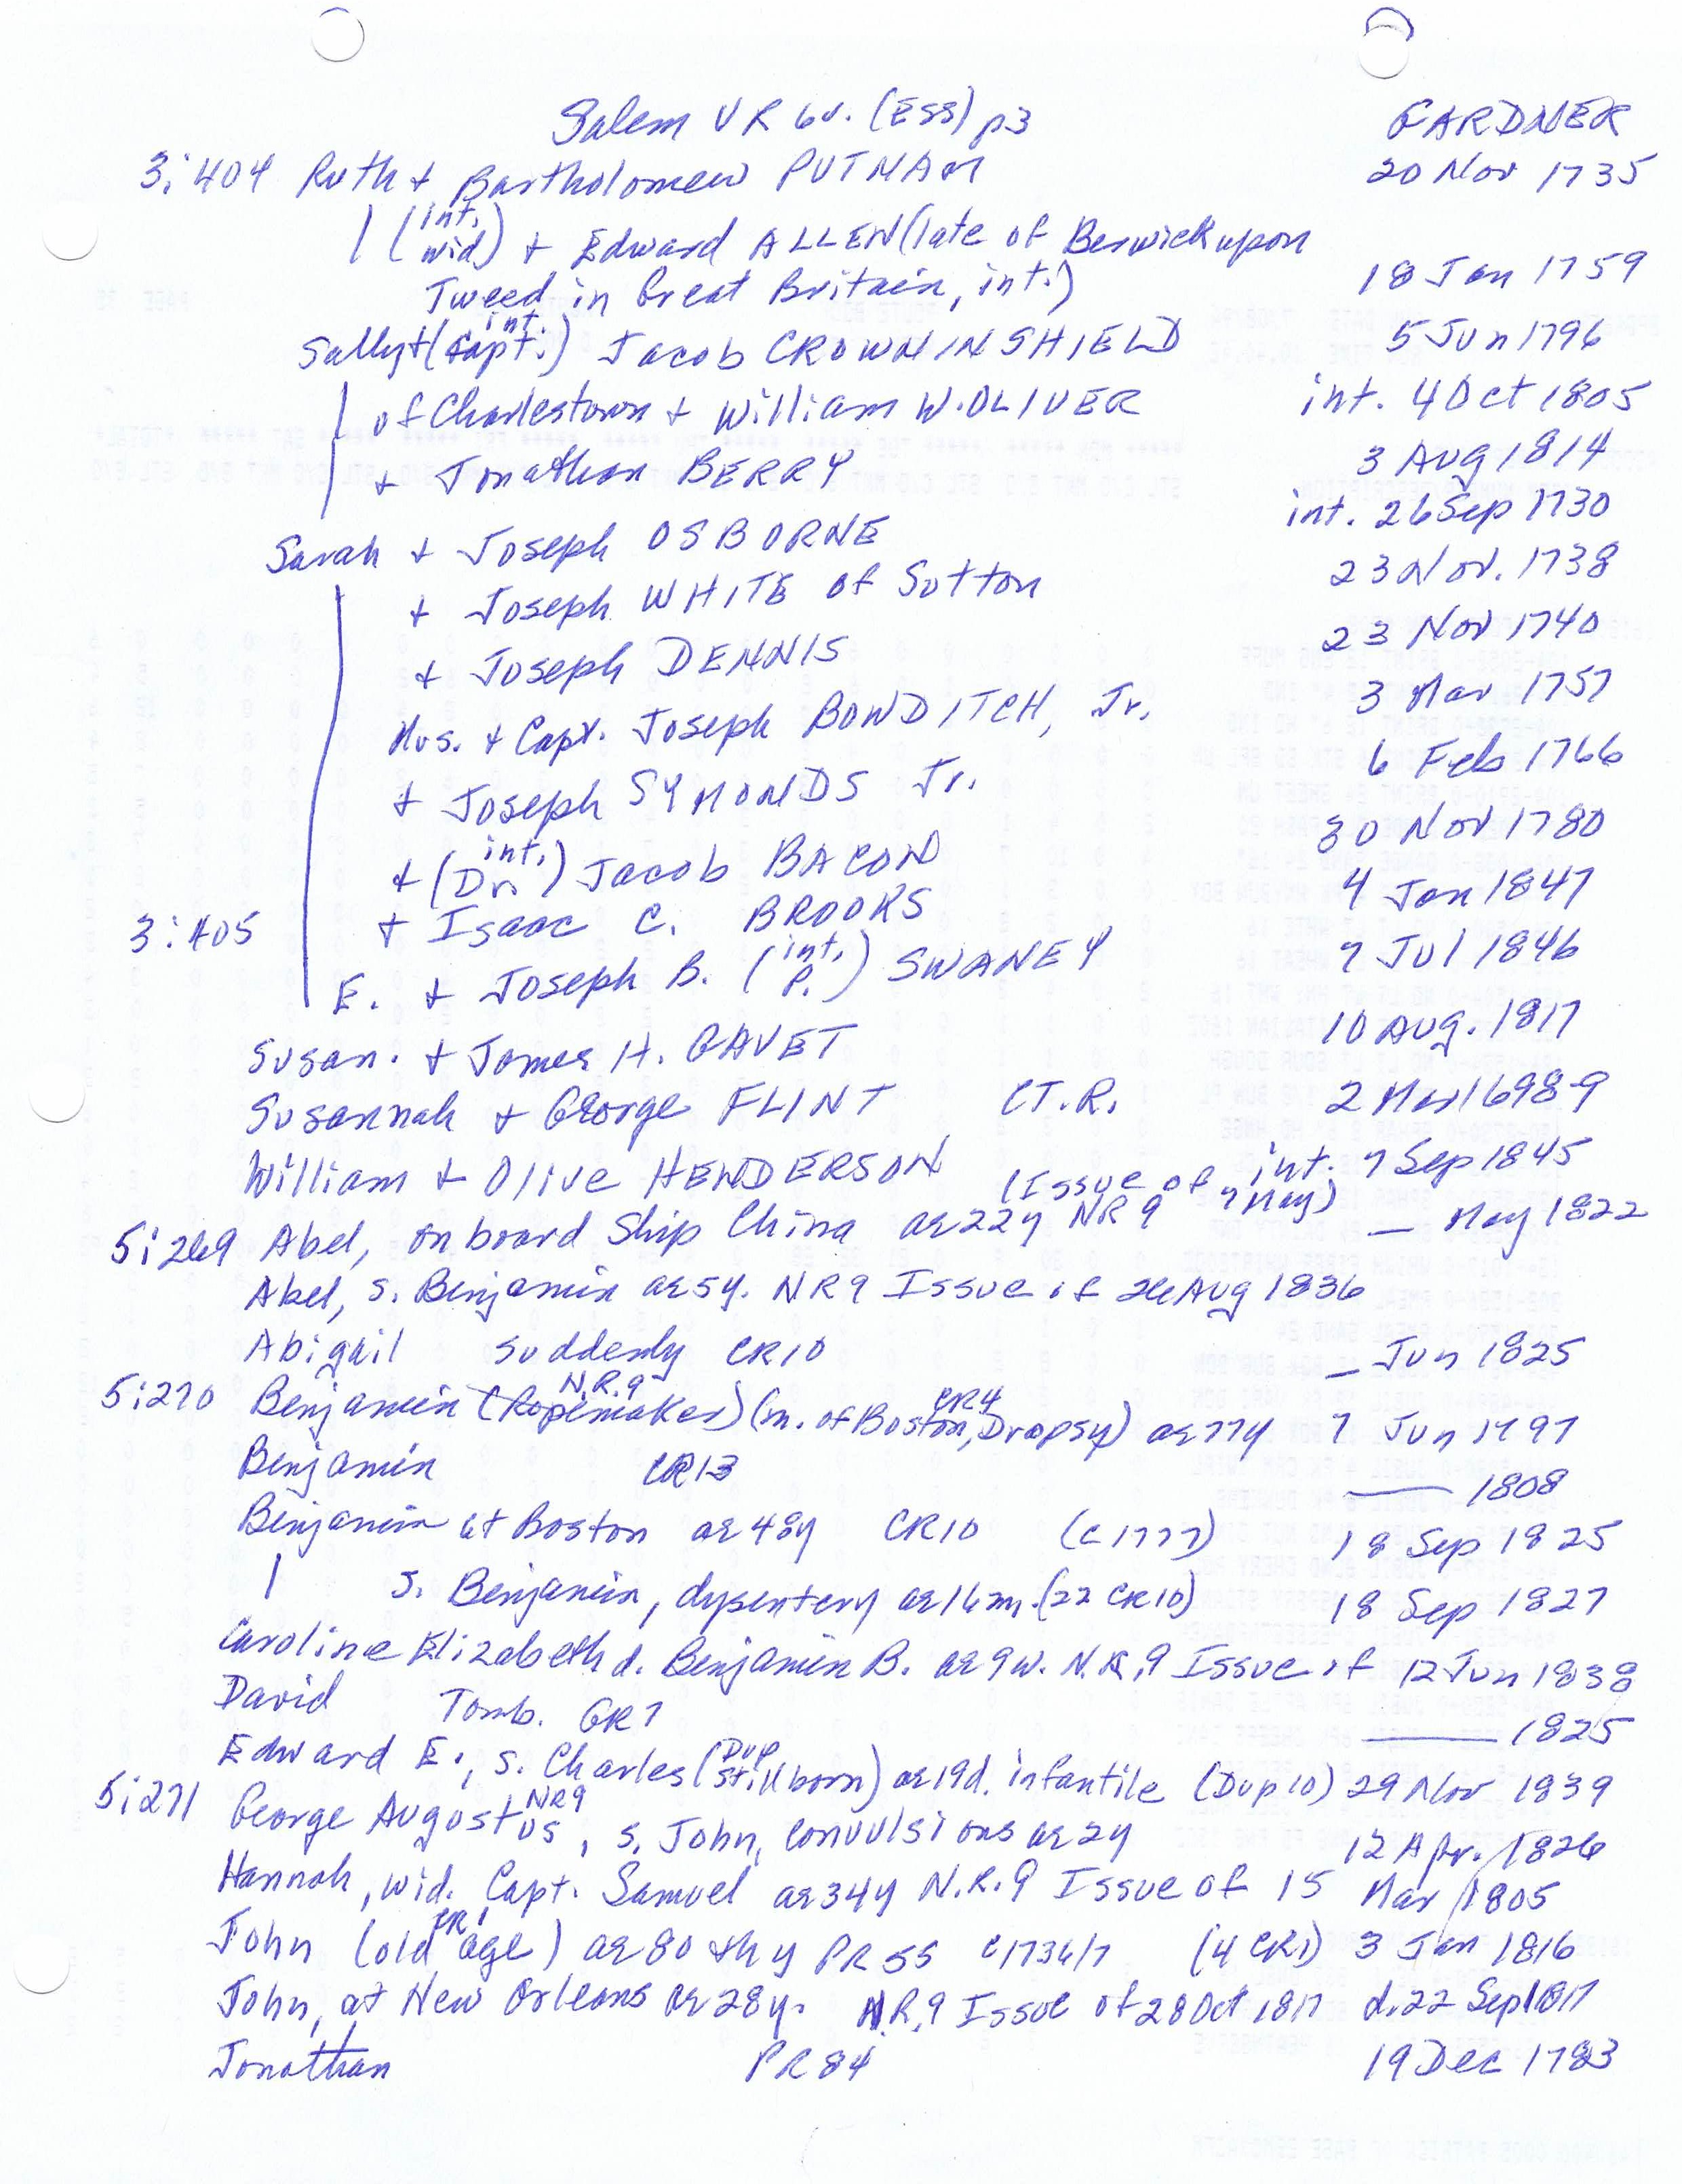 Salem VR 6v. (Ess) p3 GARDNER
3:404 Ruth + Bartholomew PUTNAM 20 Nov 1735
(int. wid) + Edward ALLEN (late of Berwick upon
Tweed in Great Britain, int.) 18 Jan 1759
Sally + (int. Capt.) Jacob CROWNINSHIELD 5 Jun 1796
of Charlestown + William W. OLIVER int. 4 Oct 1805
+ Jonathan BERRY 3 Aug 1814
Sarah + Joseph OSBORNE int. 26 Sep 1730
+ Joseph WHITE of Sutton 23 Nov. 1738
+ Joseph DENNIS 23 Nov 1740
Mrs. + Capt. Joseph BOWDITCH, Jr. 3 Mar 1757
+ Joseph SYMONDS Jr. 6 Feb 1766
+ (int. Dr.) Jacob BACON 30 Nov 1780
3:405 + Isaac C. BROOKS 4 Jan 1847
E. + Joseph B. (int. P.) SWANEY 7 Jul 1846
Susan. + James H. GAVET 10 Aug. 1817
Susannah + George FLINT CT.R. 2 Mar 1698-9
William + Olive HENDERSON int. 7 Sep 1845
5:269 Abel, on board Ship China ae 22y NR 9 (Issue of 7 May) — May 1822
Abel, s. Benjamin ae 5y. NR9 Issue of 26 Aug 1836
Abigail suddenly CR10 — Jun 1825
5:270 Benjamin (Ropemaker) N.R.9 (m. of Boston, CR4 Dropsy) ae 77y 7 Jun 1797
Benjamin CR13 — 1808
Benjamin at Boston ae 48y CR10 (c 1777) 18 Sep 1825
s. Benjamin, dysentery ae 16m. (22 CR10) 18 Sep 1827
Caroline Elizabeth d. Benjamin B. ae 9w. N.R.9 Issue of 12 Jun 1838
David Tomb. GR7 — 1825
Edward E., s. Charles (Dup stillborn) ae 19d. infantile (Dup 10) 29 Nov 1839
5:271 George Augustus NR9, s. John, convulsions ae 2y 12 Apr. 1826
Hannah, wid. Capt. Samuel ae 34y N.R.9 Issue of 15 Mar 1805
John (old age) CR1 ae 80th y PR 55 c1736/7 (4 CR1) 3 Jan 1816
John, at New Orleans ae 28y. N.R.9 Issue of 28 Oct 1817 d. 22 Sep 1817
Jonathan PR 84 19 Dec 1783